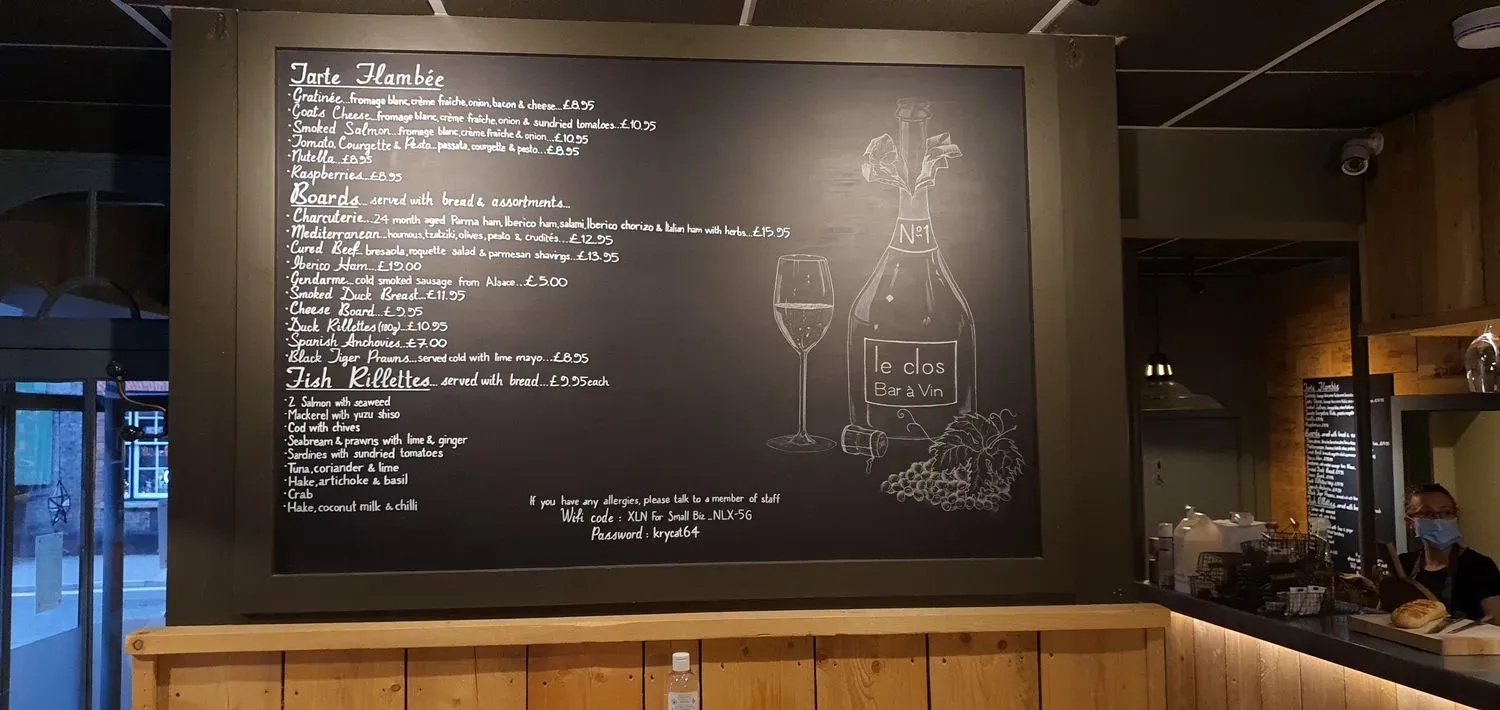 Tarte Flambée
·Gratinée...fromage blanc,crème fraîche,onion,bacon & cheese...£8.95
·Goats Cheese...fromage blanc,crème fraîche,onion & sundried tomatoes...£10.95
·Smoked Salmon...fromage blanc,crème fraîche & onion...£10.95
·Tomato, Courgette & Pesto...passata,courgette & pesto...£8.95
·Nutella...£8.95
·Raspberries...£8.95
Boards... served with bread & assortments...
·Charcuterie...24 month aged Parma ham,Iberico ham,salami,Iberico chorizo & Italian ham with herbs...£15.95
·Mediterranean...houmous,tzatziki,olives,pesto & crudités...£12.95
·Cured Beef...bresaola,roquette salad & parmesan shavings...£13.95
·Iberico Ham...£19.00
·Gendarme...cold smoked sausage from Alsace...£5.00
·Smoked Duck Breast...£11.95
·Cheese Board...£9.95
·Duck Rillettes (180g)...£10.95
·Spanish Anchovies...£7.00
·Black Tiger Prawns...served cold with lime mayo...£8.95
Fish Rillettes... served with bread...£9.95each
·2 Salmon with seaweed
·Mackerel with yuzu shiso
·Cod with chives
·Seabream & prawns with lime & ginger
·Sardines with sundried tomatoes
·Tuna,coriander & lime
·Hake,artichoke & basil
·Crab
·Hake, coconut milk & chilli
If you have any allergies, please talk to a member of staff
Wifi code : XLN For Small Biz_NLX-5G
Password : krycat64
Nº1
le clos
Bar à Vin
Tarte Flambée